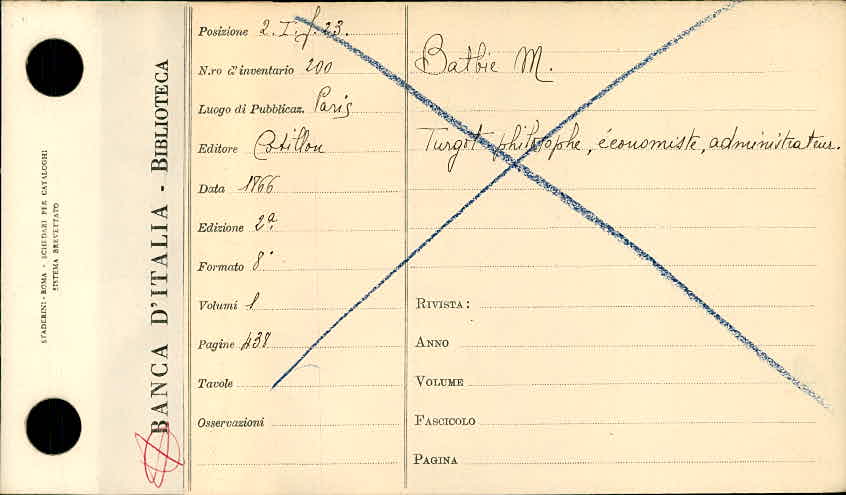 STADERINI - ROMA - SCHEDARI PER CATALOGHI
SISTEMA BREVETTATO
BANCA D'ITALIA - BIBLIOTECA
Posizione 2. I. f. 23.
N.ro d'inventario 200
Luogo di Pubblicaz. Paris
Editore Cotillon
Data 1866
Edizione 2ª
Formato 8°
Volumi 1
Pagine 438
Tavole
Osservazioni
Batbie M.
Turgot philosophe, économiste, administrateur.
RIVISTA:
ANNO
VOLUME
FASCICOLO
PAGINA